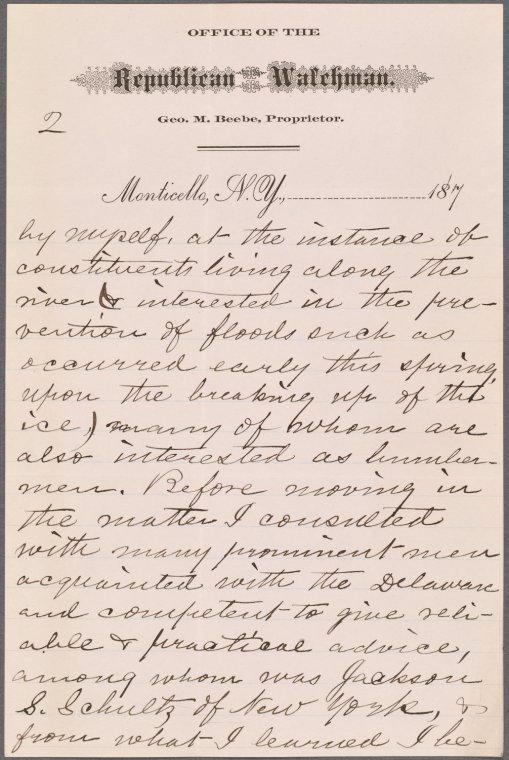 OFFICE OF THE
Republican Watchman.
2
Geo. M. Beebe, Proprietor.
Monticello, N.Y., 187
by myself, at the instance of
constituents living along the
river & interested in the pre-
vention of floods such as
occurred early this spring,
upon the breaking up of the
ice,) many of whom are
also interested as lumber-
men. Before moving in
the matter I consulted
with many prominent men
acquainted with the Delaware
and competent to give reli-
able & practical advice,
among whom was Jackson
S. Schultz of New York, &
from what I learned I be-